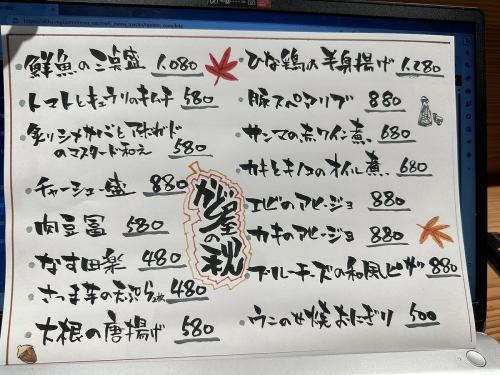 鮮魚の三点盛 1,080
トマトとキュウリのキムチ 580
炙りシメサバとアボカド
のマスタード和え 580
チャーシュー盛 880
肉豆冨 580
なす田楽 480
さつま芋の天ぷら 480
大根の唐揚げ 580
がど屋の秋
ひな鶏の半身揚げ 1,280
豚スペアリブ 880
サンマの赤ワイン煮 680
カキとキノコのオイル煮 680
エビのアヒージョ 880
カキのアヒージョ 880
ブルーチーズの和風ピザ 880
ウニの女焼おにぎり 500